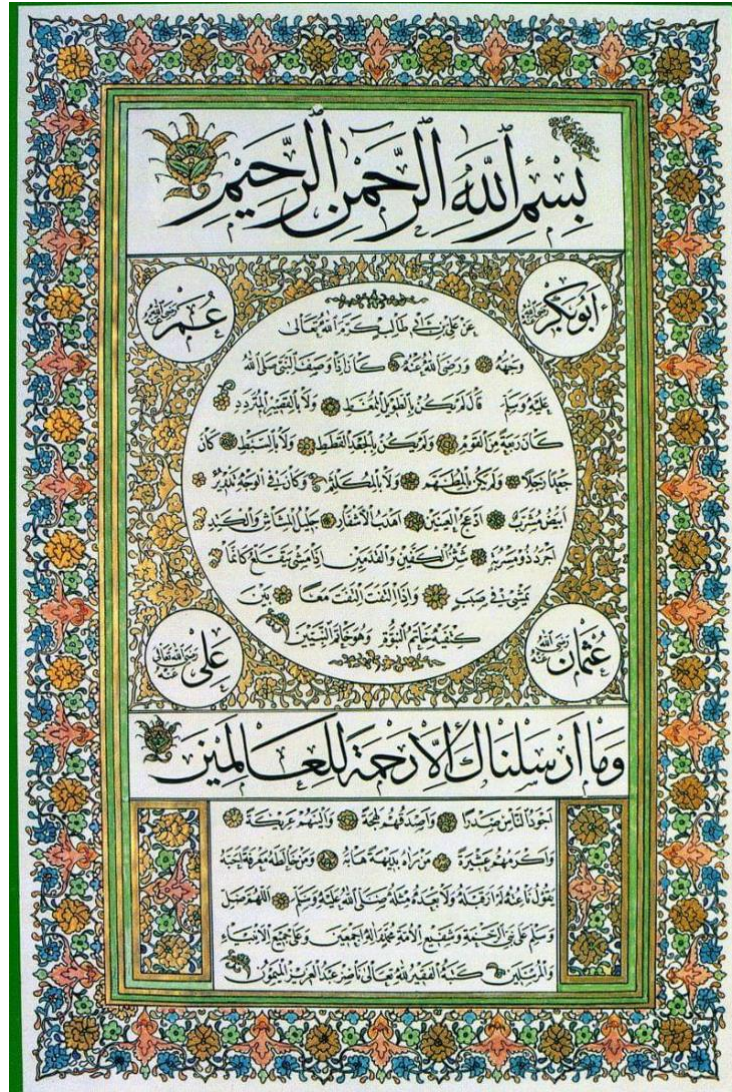 بِسْمِ اللَّهِ الرَّحْمَنِ الرَّحِيمِ
أبوبكر رضي الله عنه
عمر رضي الله عنه
عن علي بن أبي طالب كرم الله تعالى
وجهه ورضي الله عنه كان إذا وصف النبي صلى الله
عليه وسلم قال لم يكن بالطويل الممغط ولا بالقصير المتردد
كان ربعة من القوم ولم يكن بالجعد القطط ولا بالسبط كان
جعدا رجلا ولم يكن بالمطهم ولا بالمكلثم وكان في الوجه تدوير
ابيض مشرب ادعج العينين اهدب الأشفار جليل المشاش والكتد
اجرد ذو مسربة شثن الكفين والقدمين اذا مشى يتقلع كانما
يمشي في صبب واذا التفت التفت معا بين
كتفيه خاتم النبوة وهو خاتم النبيين
عثمان رضي الله عنه
علي رضي الله تعالى عنه
وما أرسلناك إلا رحمة للعالمين
اجود الناس صدرا واصدقهم لهجة والينهم عريكة
واكرمهم عشيرة من راه بديهة هابه ومن خالطه معرفة احبه
يقول ناعته لم ار قبله ولا بعده مثله صلى الله عليه وسلم اللهم صل
وسلم على نبي الرحمة وشفيع الامة محمد واله اجمعين وعلى جميع الانبياء
والمرسلين كتبه الفقير لله تعالى ناصر عبدالعزيز الميمون